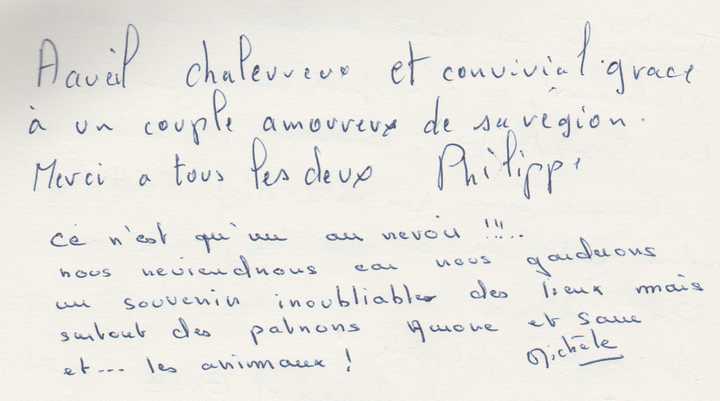 Accueil chaleureux et convivial grace
à un couple amoureux de sa région.
Merci a tous les deux Philippe
ce n'est qu'un au revoir !!!..
nous reviendrons car nous garderons
un souvenir inoubliable des lieux mais
surtout des patrons et
et... les animaux !
Michèle